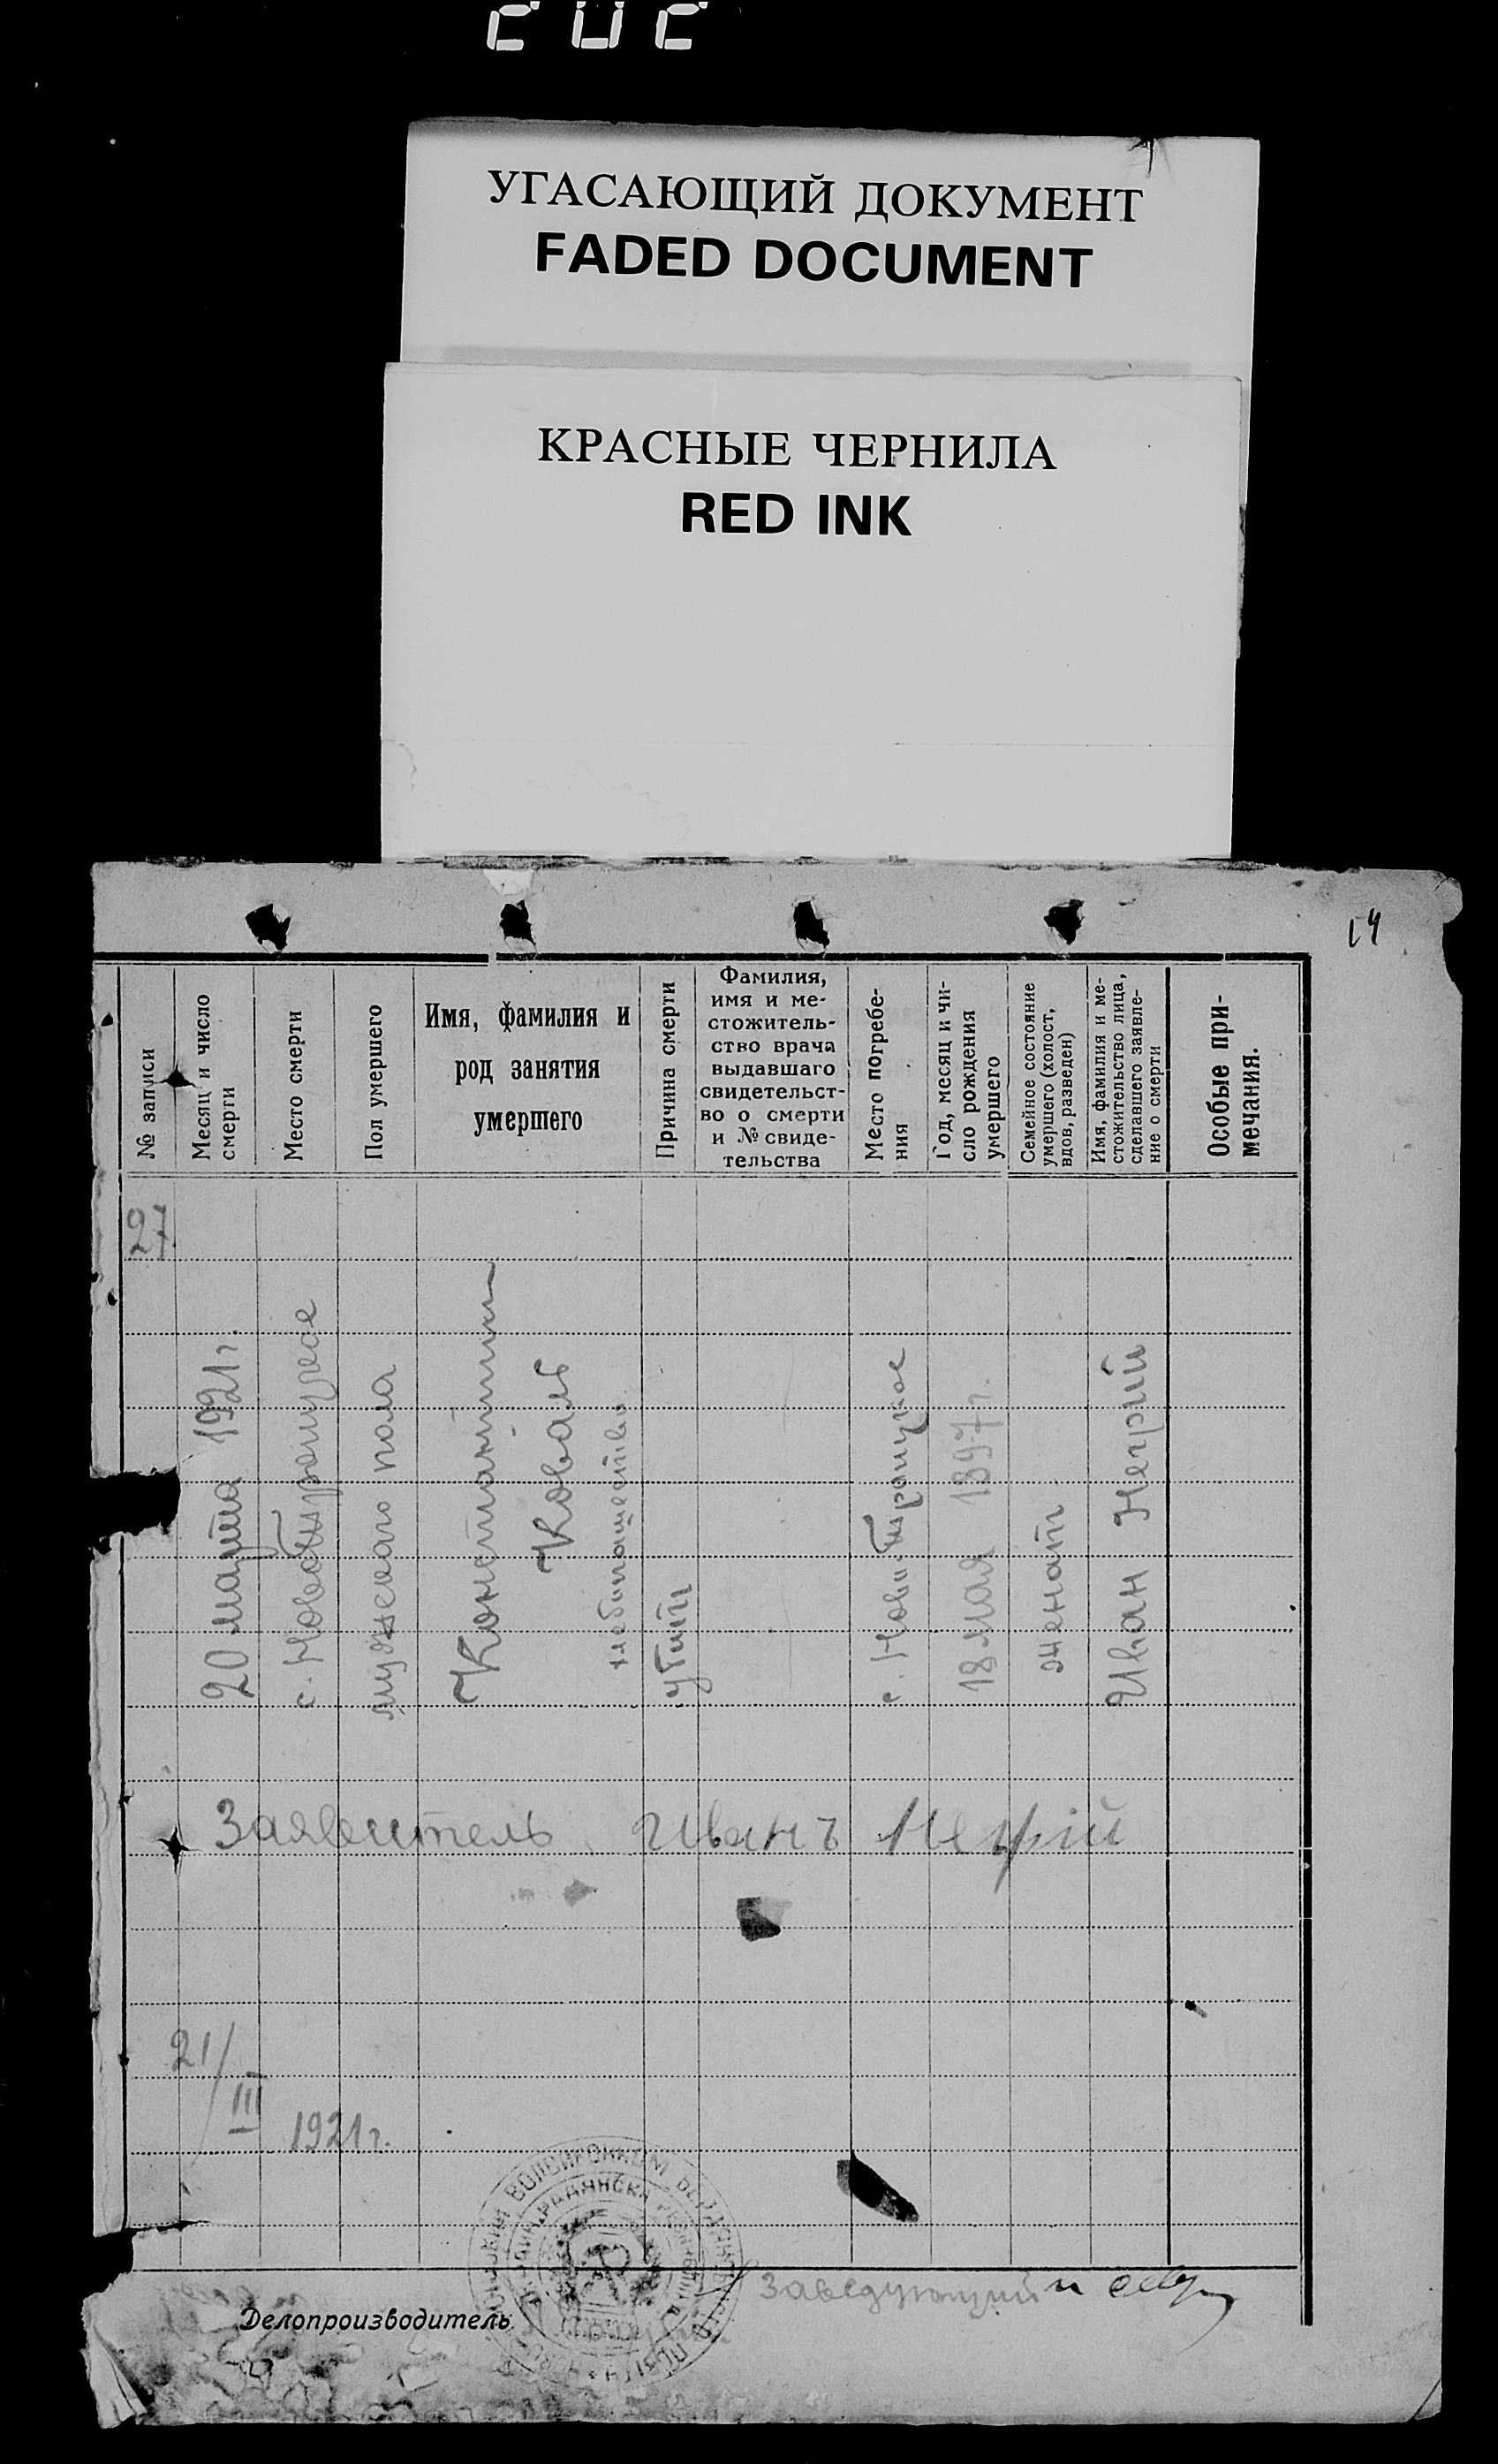 УГАСАЮЩИЙ ДОКУМЕНТ
FADED DOCUMENT
КРАСНЫЕ ЧЕРНИЛА
RED INK
14
№ записи
Месяц и число
смерти
Место смерти
Пол умершего
Имя, фамилия и
род занятия
умершего
Причина смерти
Фамилия,
имя и ме-
стожитель-
ство врача
выдавшаго
свидетельст-
во о смерти
и № свиде-
тельства
Место погребе-
ния
Год, месяц и чи-
сло рождения
умершего
Семейное состояние
умершего (холост,
вдов, разведен)
Имя, фамилия и ме-
стожительство лица,
сделавшего заявле-
ние о смерти
Особые при-
мечания.
27
20 марта 1921 г.
с. Новотроицкое
мужского пола
Константин
Коваль
хлебопашество
убит
с. Ново-Троицкое
18 мая 1897 г.
женат
Иван Негрий
Заявитель Иванъ Негрій
21/III 1921 г.
Заведующий
Делопроизводитель